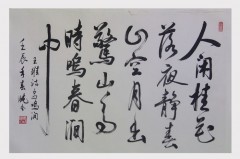 人闲桂花
落夜静春
山空月出
驚山鸟
時鸣春涧
中
王維诗鸟鸣涧
壬辰年春